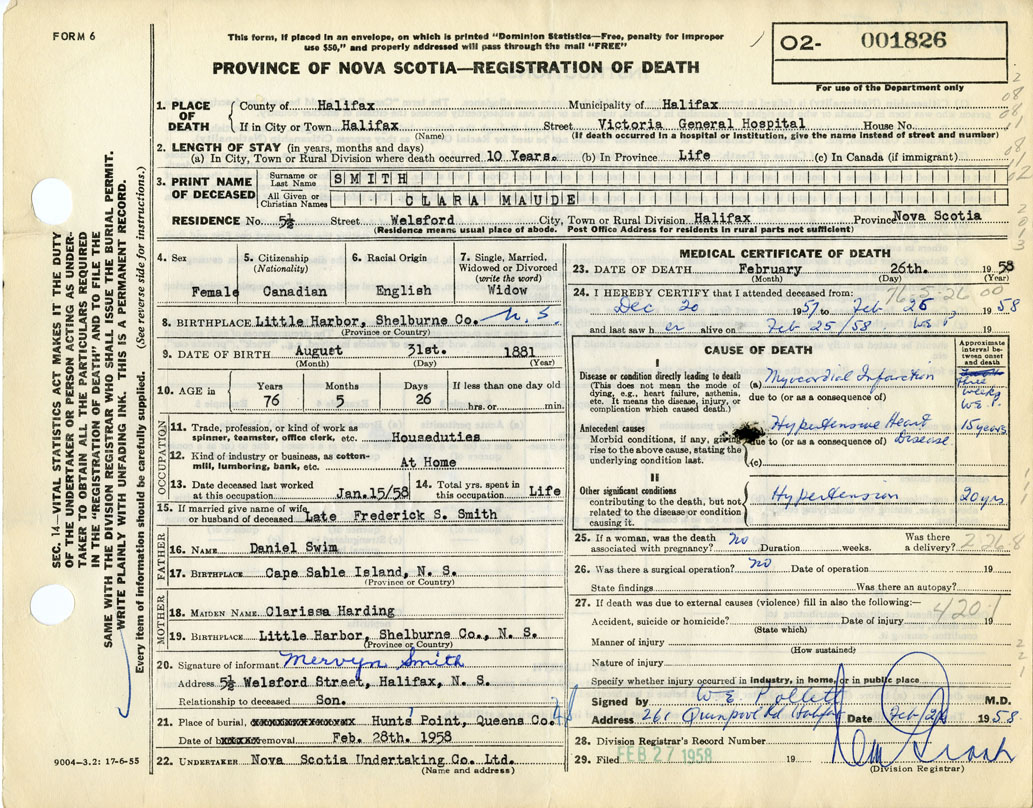 FORM 6
This form, if placed in an envelope, on which is printed "Dominion Statistics—Free, penalty for improper
use $50," and properly addressed will pass through the mail "FREE"
PROVINCE OF NOVA SCOTIA—REGISTRATION OF DEATH
02- 001826
For use of the Department only
1. PLACE OF DEATH
County of Halifax Municipality of Halifax
If in City or Town Halifax Street Victoria General Hospital House No.
(Name) (If death occurred in a hospital or institution, give the name instead of street and number)
2. LENGTH OF STAY (in years, months and days)
(a) In City, Town or Rural Division where death occurred 10 Years. (b) In Province Life (c) In Canada (if immigrant)
3. PRINT NAME OF DECEASED
Surname or Last Name SMITH
All Given or Christian Names CLARA MAUDE
RESIDENCE No. 5½ Street Welsford City, Town or Rural Division Halifax Province Nova Scotia
(Residence means usual place of abode. Post Office Address for residents in rural parts not sufficient)
4. Sex
Female
5. Citizenship
(Nationality)
Canadian
6. Racial Origin
English
7. Single, Married,
Widowed or Divorced
(write the word)
Widow
8. BIRTHPLACE Little Harbor, Shelburne Co. N.S.
(Province or Country)
9. DATE OF BIRTH August 31st. 1881
(Month) (Day) (Year)
10. AGE in
Years Months Days If less than one day old
76 5 26 hrs. or min.
OCCUPATION
11. Trade, profession, or kind of work as
spinner, teamster, office clerk, etc. Houseduties
12. Kind of industry or business, as cotton-
mill, lumbering, bank, etc. At Home
13. Date deceased last worked
at this occupation Jan.15/58
14. Total yrs. spent in
this occupation Life
15. If married give name of wife
or husband of deceased Late Frederick S. Smith
FATHER
16. NAME Daniel Swim
17. BIRTHPLACE Cape Sable Island, N. S.
(Province or Country)
MOTHER
18. MAIDEN NAME Clarissa Harding
19. BIRTHPLACE Little Harbor, Shelburne Co., N. S.
(Province or Country)
20. Signature of informant Mervyn Smith
Address 5½ Welsford Street, Halifax, N. S.
Relationship to deceased Son.
21. Place of burial, xxxxxxxxxxxxxxxxx Hunts' Point, Queens Co. NS
Date of bxxxxxx removal Feb. 28th. 1958
22. UNDERTAKER Nova Scotia Undertaking Co. Ltd.
(Name and address)
9004—3.2: 17-6-55
MEDICAL CERTIFICATE OF DEATH
23. DATE OF DEATH February 26th. 1958
(Month) (Day) (Year)
24. I HEREBY CERTIFY that I attended deceased from: 76.5-26 00
Dec 20 1957 to Feb 25 1958
and last saw her alive on Feb 25/58. WEP 19
CAUSE OF DEATH
Approximate
interval be-
tween onset
and death
I
Disease or condition directly leading to death
(This does not mean the mode of
dying, e.g., heart failure, asthenia,
etc. It means the disease, injury, or
complication which caused death.)
(a) Myocardial Infarction
due to (or as a consequence of)
three
weeks
W.E.P.
Antecedent causes
Morbid conditions, if any, giving
rise to the above cause, stating the
underlying condition last.
Hypertensive Heart Disease 15 years
due to (or as a consequence of)
(c)
II
Other significant conditions
contributing to the death, but not
related to the disease or condition
causing it.
Hypertension 20 yrs.
25. If a woman, was the death
associated with pregnancy? no Duration weeks. Was there
a delivery? 2268
26. Was there a surgical operation? no Date of operation 19
State findings Was there an autopsy?
27. If death was due to external causes (violence) fill in also the following:—
420.1
Accident, suicide or homicide? Date of injury 19
(State which)
Manner of injury
(How sustained)
Nature of injury
Specify whether injury occurred in industry, in home, or in public place
Signed by W E Pollett M.D.
Address 261 Quinpool Rd Halifax Date Feb/26 1958
28. Division Registrar's Record Number
29. Filed FEB 27 1958 19
(Division Registrar)
SEC. 14—VITAL STATISTICS ACT MAKES IT THE DUTY
OF THE UNDERTAKER OR PERSON ACTING AS UNDER-
TAKER TO OBTAIN ALL THE PARTICULARS REQUIRED
IN THE "REGISTRATION OF DEATH" AND TO FILE THE
SAME WITH THE DIVISION REGISTRAR WHO SHALL ISSUE THE BURIAL PERMIT.
WRITE PLAINLY WITH UNFADING INK. THIS IS A PERMANENT RECORD.
Every item of information should be carefully supplied. (See reverse side for instructions.)